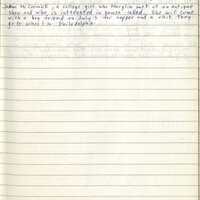 JoAnn McCormick, a college girl who Marylin met at an antique
show and who is interested in games called. She will come
with a boy friend on July 5 for supper and a visit. They
go to school in Philadelphia.